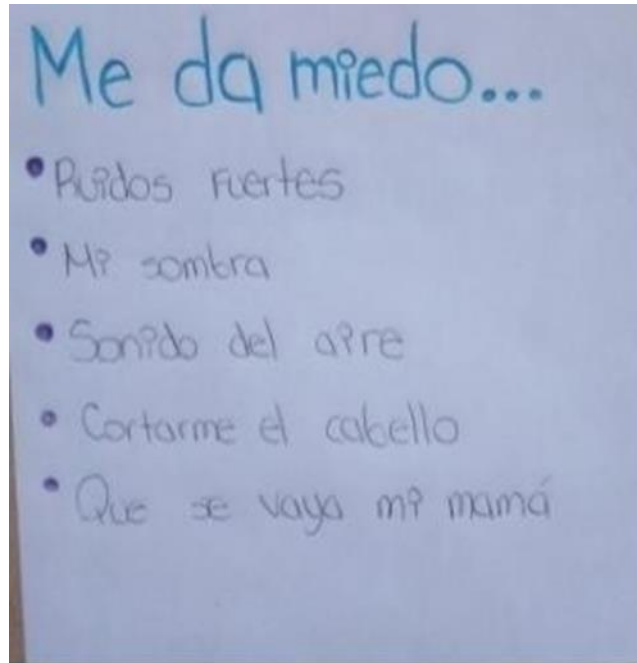 Me da miedo...
• Ruidos fuertes
• Mi sombra
• Sonido del aire
• Cortarme el cabello
• Que se vaya mi mamá